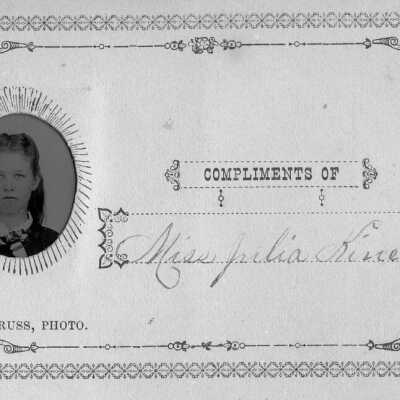 COMPLIMENTS OF
Miss Julia
RUSS, PHOTO.